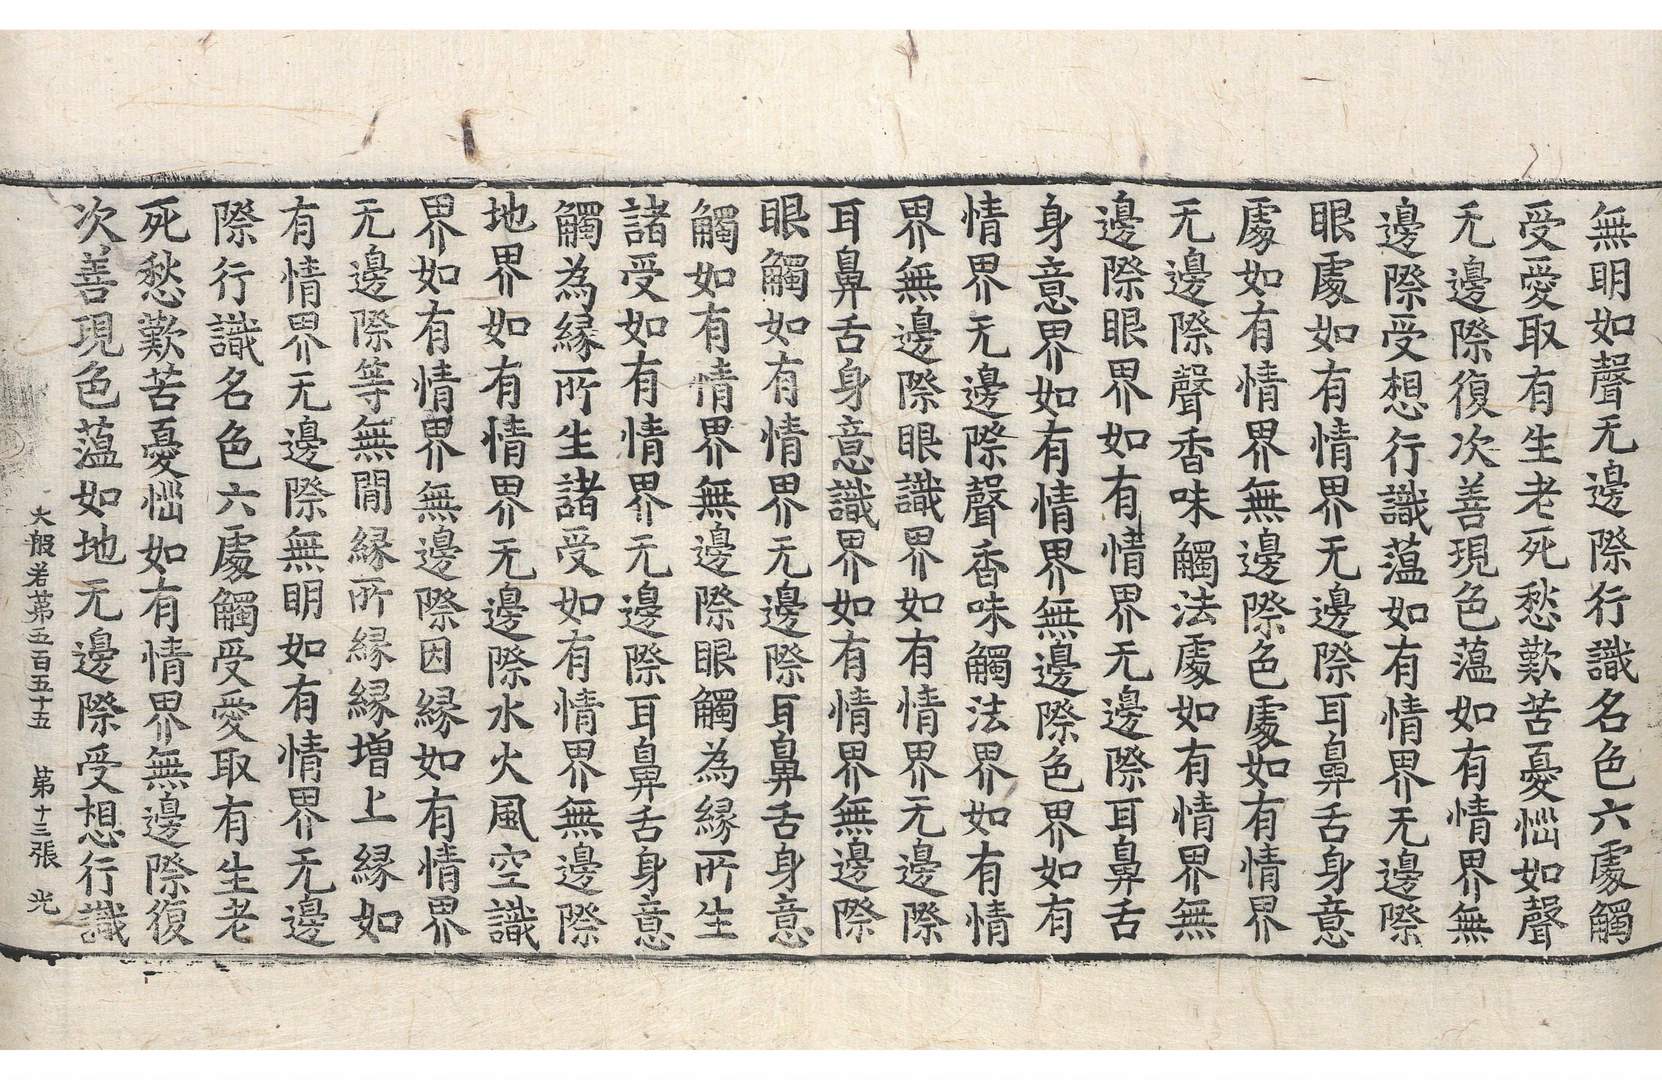 無明如聲无邊際行識名色六處觸
受愛取有生老死愁歎苦憂惱如聲
无邊際復次善現色薀如有情界無
邊際受想行識薀如有情界无邊際
眼處如有情界无邊際耳鼻舌身意
處如有情界無邊際色處如有情界
无邊際聲香味觸法處如有情界無
邊際眼界如有情界无邊際耳鼻舌
身意界如有情界無邊際色界如有
情界无邊際聲香味觸法界如有情
界無邊際眼識界如有情界无邊際
耳鼻舌身意識界如有情界無邊際
眼觸如有情界无邊際耳鼻舌身意
觸如有情界無邊際眼觸為縁所生
諸受如有情界无邊際耳鼻舌身意
觸為縁所生諸受如有情界無邊際
地界如有情界无邊際水火風空識
界如有情界無邊際因縁如有情界
无邊際等無閒縁所縁縁增上縁如
有情界无邊際無明如有情界无邊
際行識名色六處觸受愛取有生老
死愁歎苦憂惱如有情界無邊際復
次善現色薀如地无邊際受想行識
大般若苐五百五十五 苐十三張 光